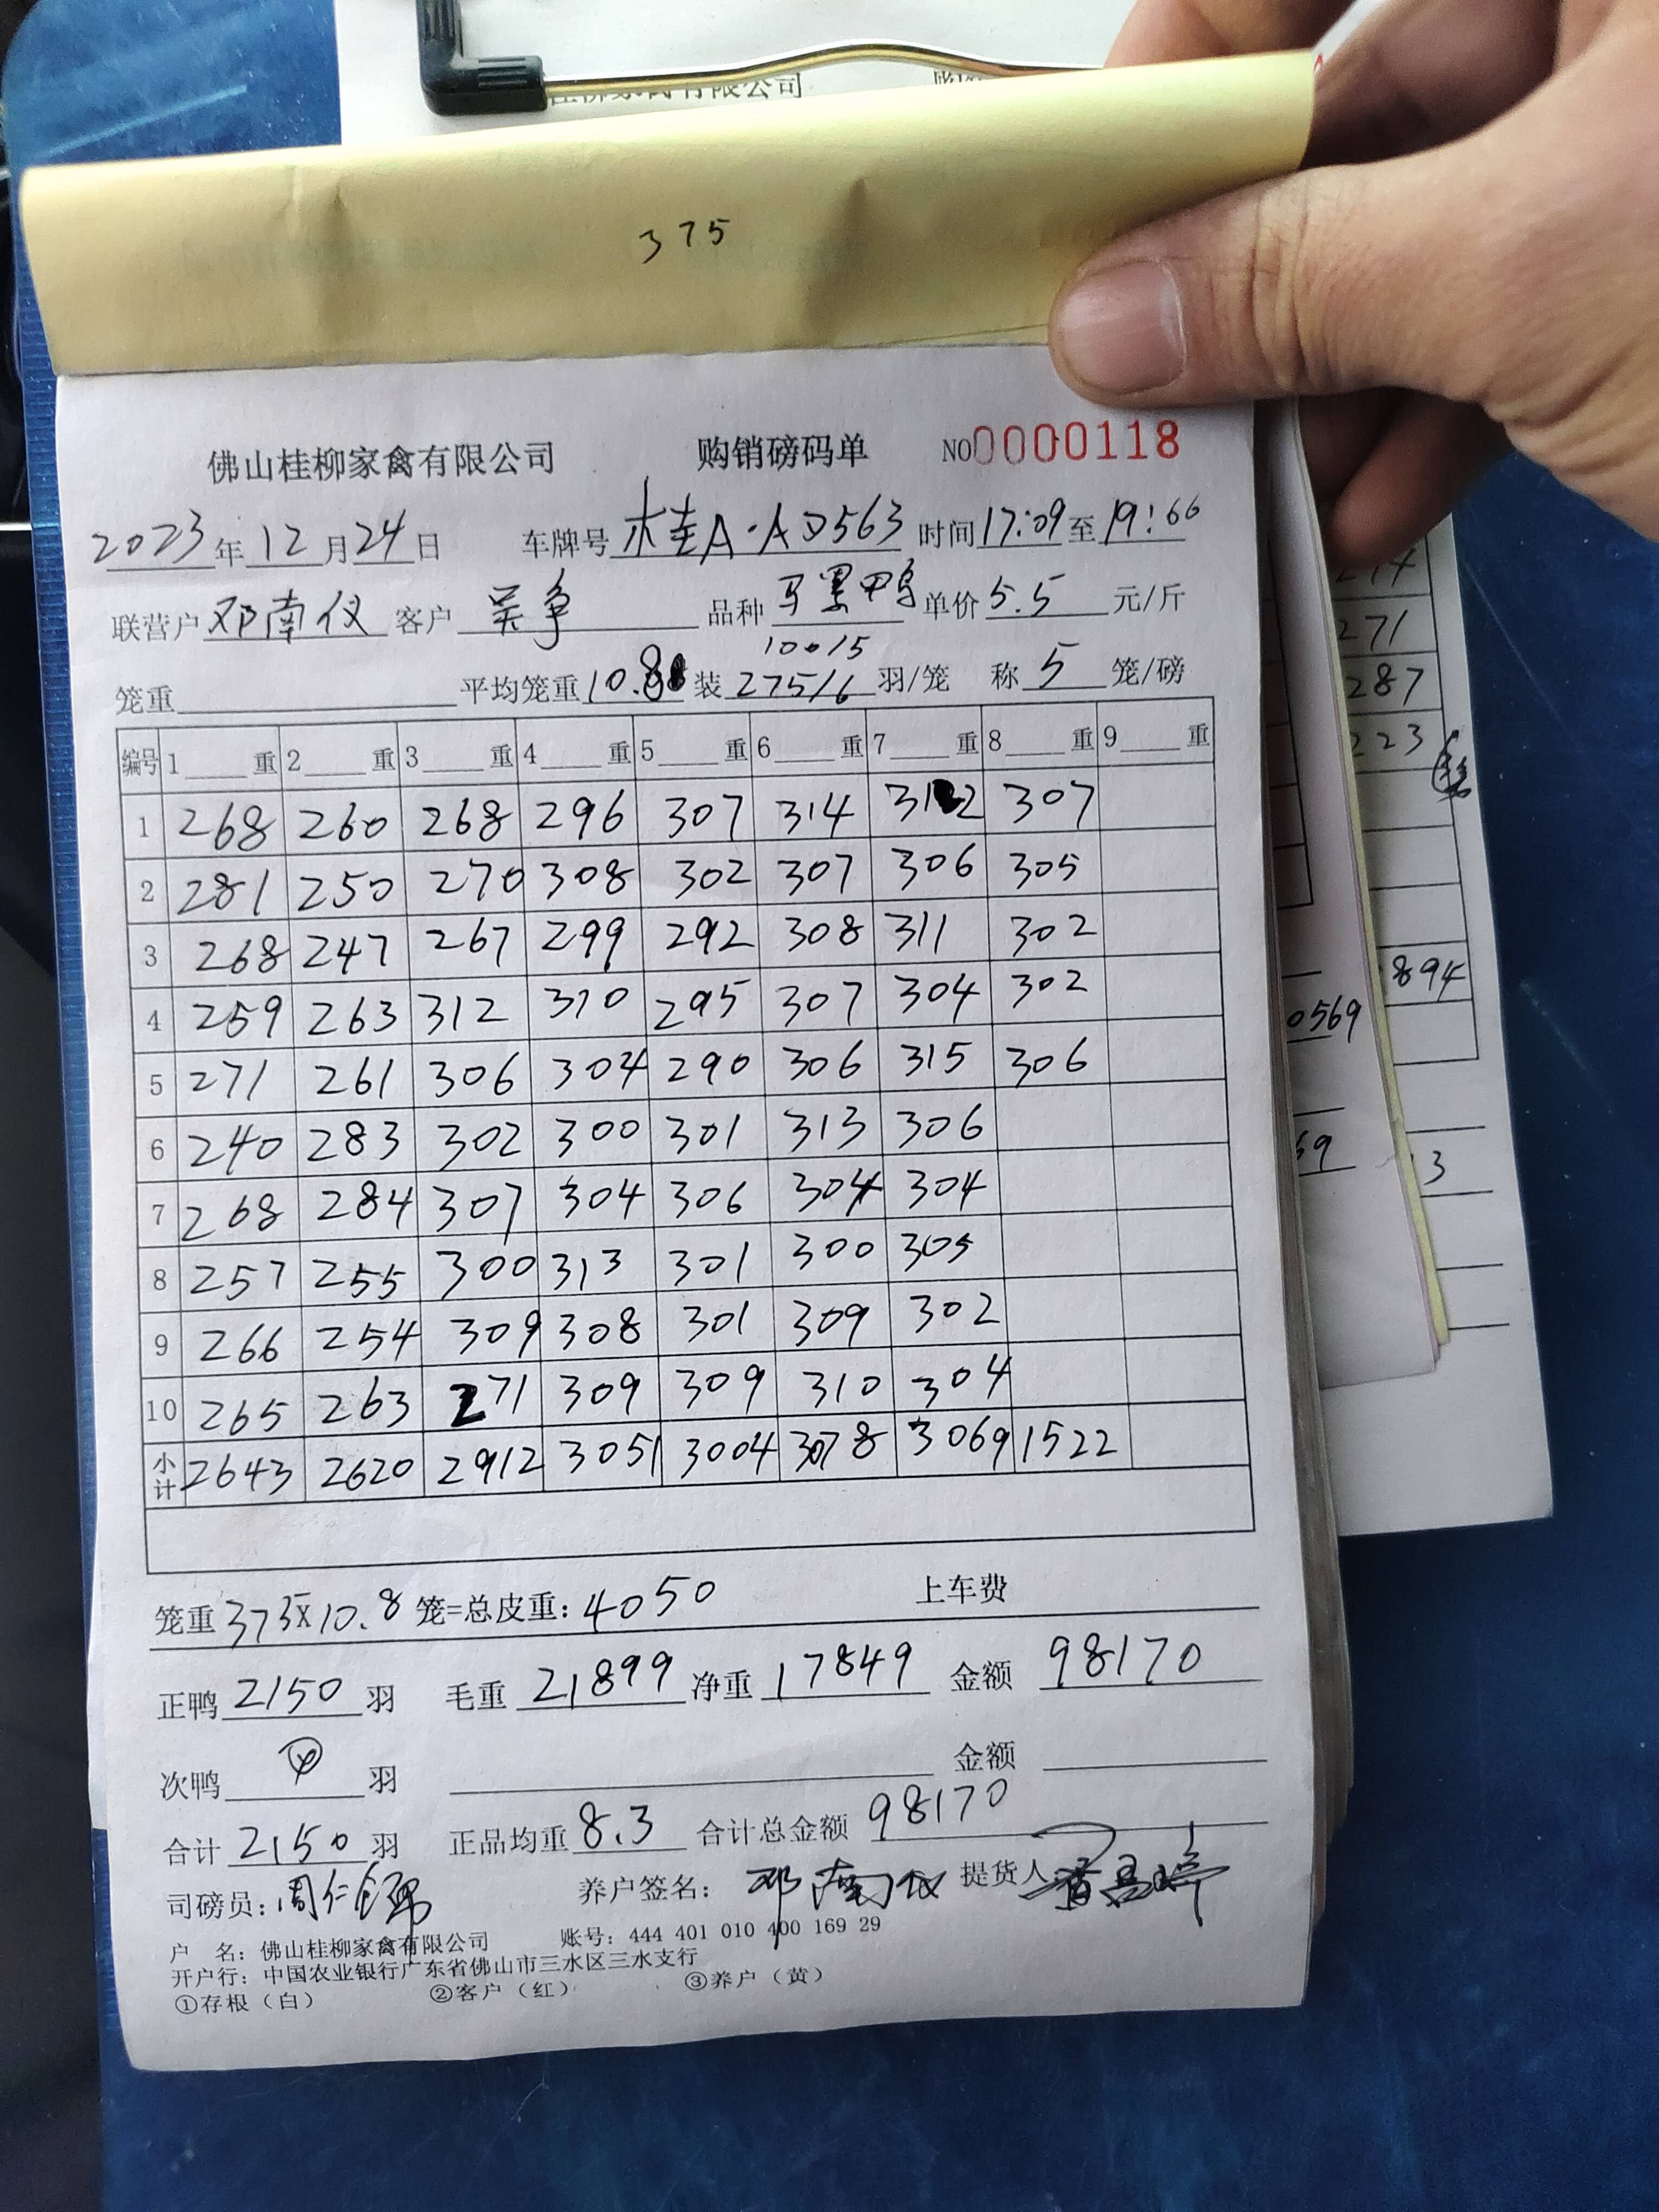 375
佛山桂柳家禽有限公司 购销磅码单 NO0000118
2023年12月24日 车牌号 桂A·AD563 时间17:09至19:66
联营户 邓南仪 客户 吴争 品种 单价5.5 元/斤
100/5
笼重 平均笼重10.8 装 275/6 羽/笼 称 5 笼/磅
编号 1 重 2 重 3 重 4 重 5 重 6 重 7 重 8 重 9 重
1 268 260 268 296 307 314 312 307
2 281 250 270 308 302 307 306 305
3 268 247 267 299 292 308 311 302
4 259 263 312 310 295 307 304 302
5 271 261 306 304 290 306 315 306
6 240 283 302 300 301 313 306
7 268 284 307 304 306 304 304
8 257 255 300 313 301 300 305
9 266 254 309 308 301 309 302
10 265 263 271 309 309 310 304
小计 2643 2620 2912 3051 3004 3078 3069 1522
笼重 375x10.8 笼=总皮重：4050 上车费
正鸭 2150 羽 毛重 21899 净重 17849 金额 98170
次鸭 羽 金额
合计 2150 羽 正品均重 8.3 合计总金额 98170
司磅员： 养户签名：邓南仪 提货人
户 名：佛山桂柳家禽有限公司 账号：444 401 010 400 169 29
开户行：中国农业银行广东省佛山市三水区三水支行
①存根（白） ②客户（红） ③养户（黄）
271
287
223
894
0569